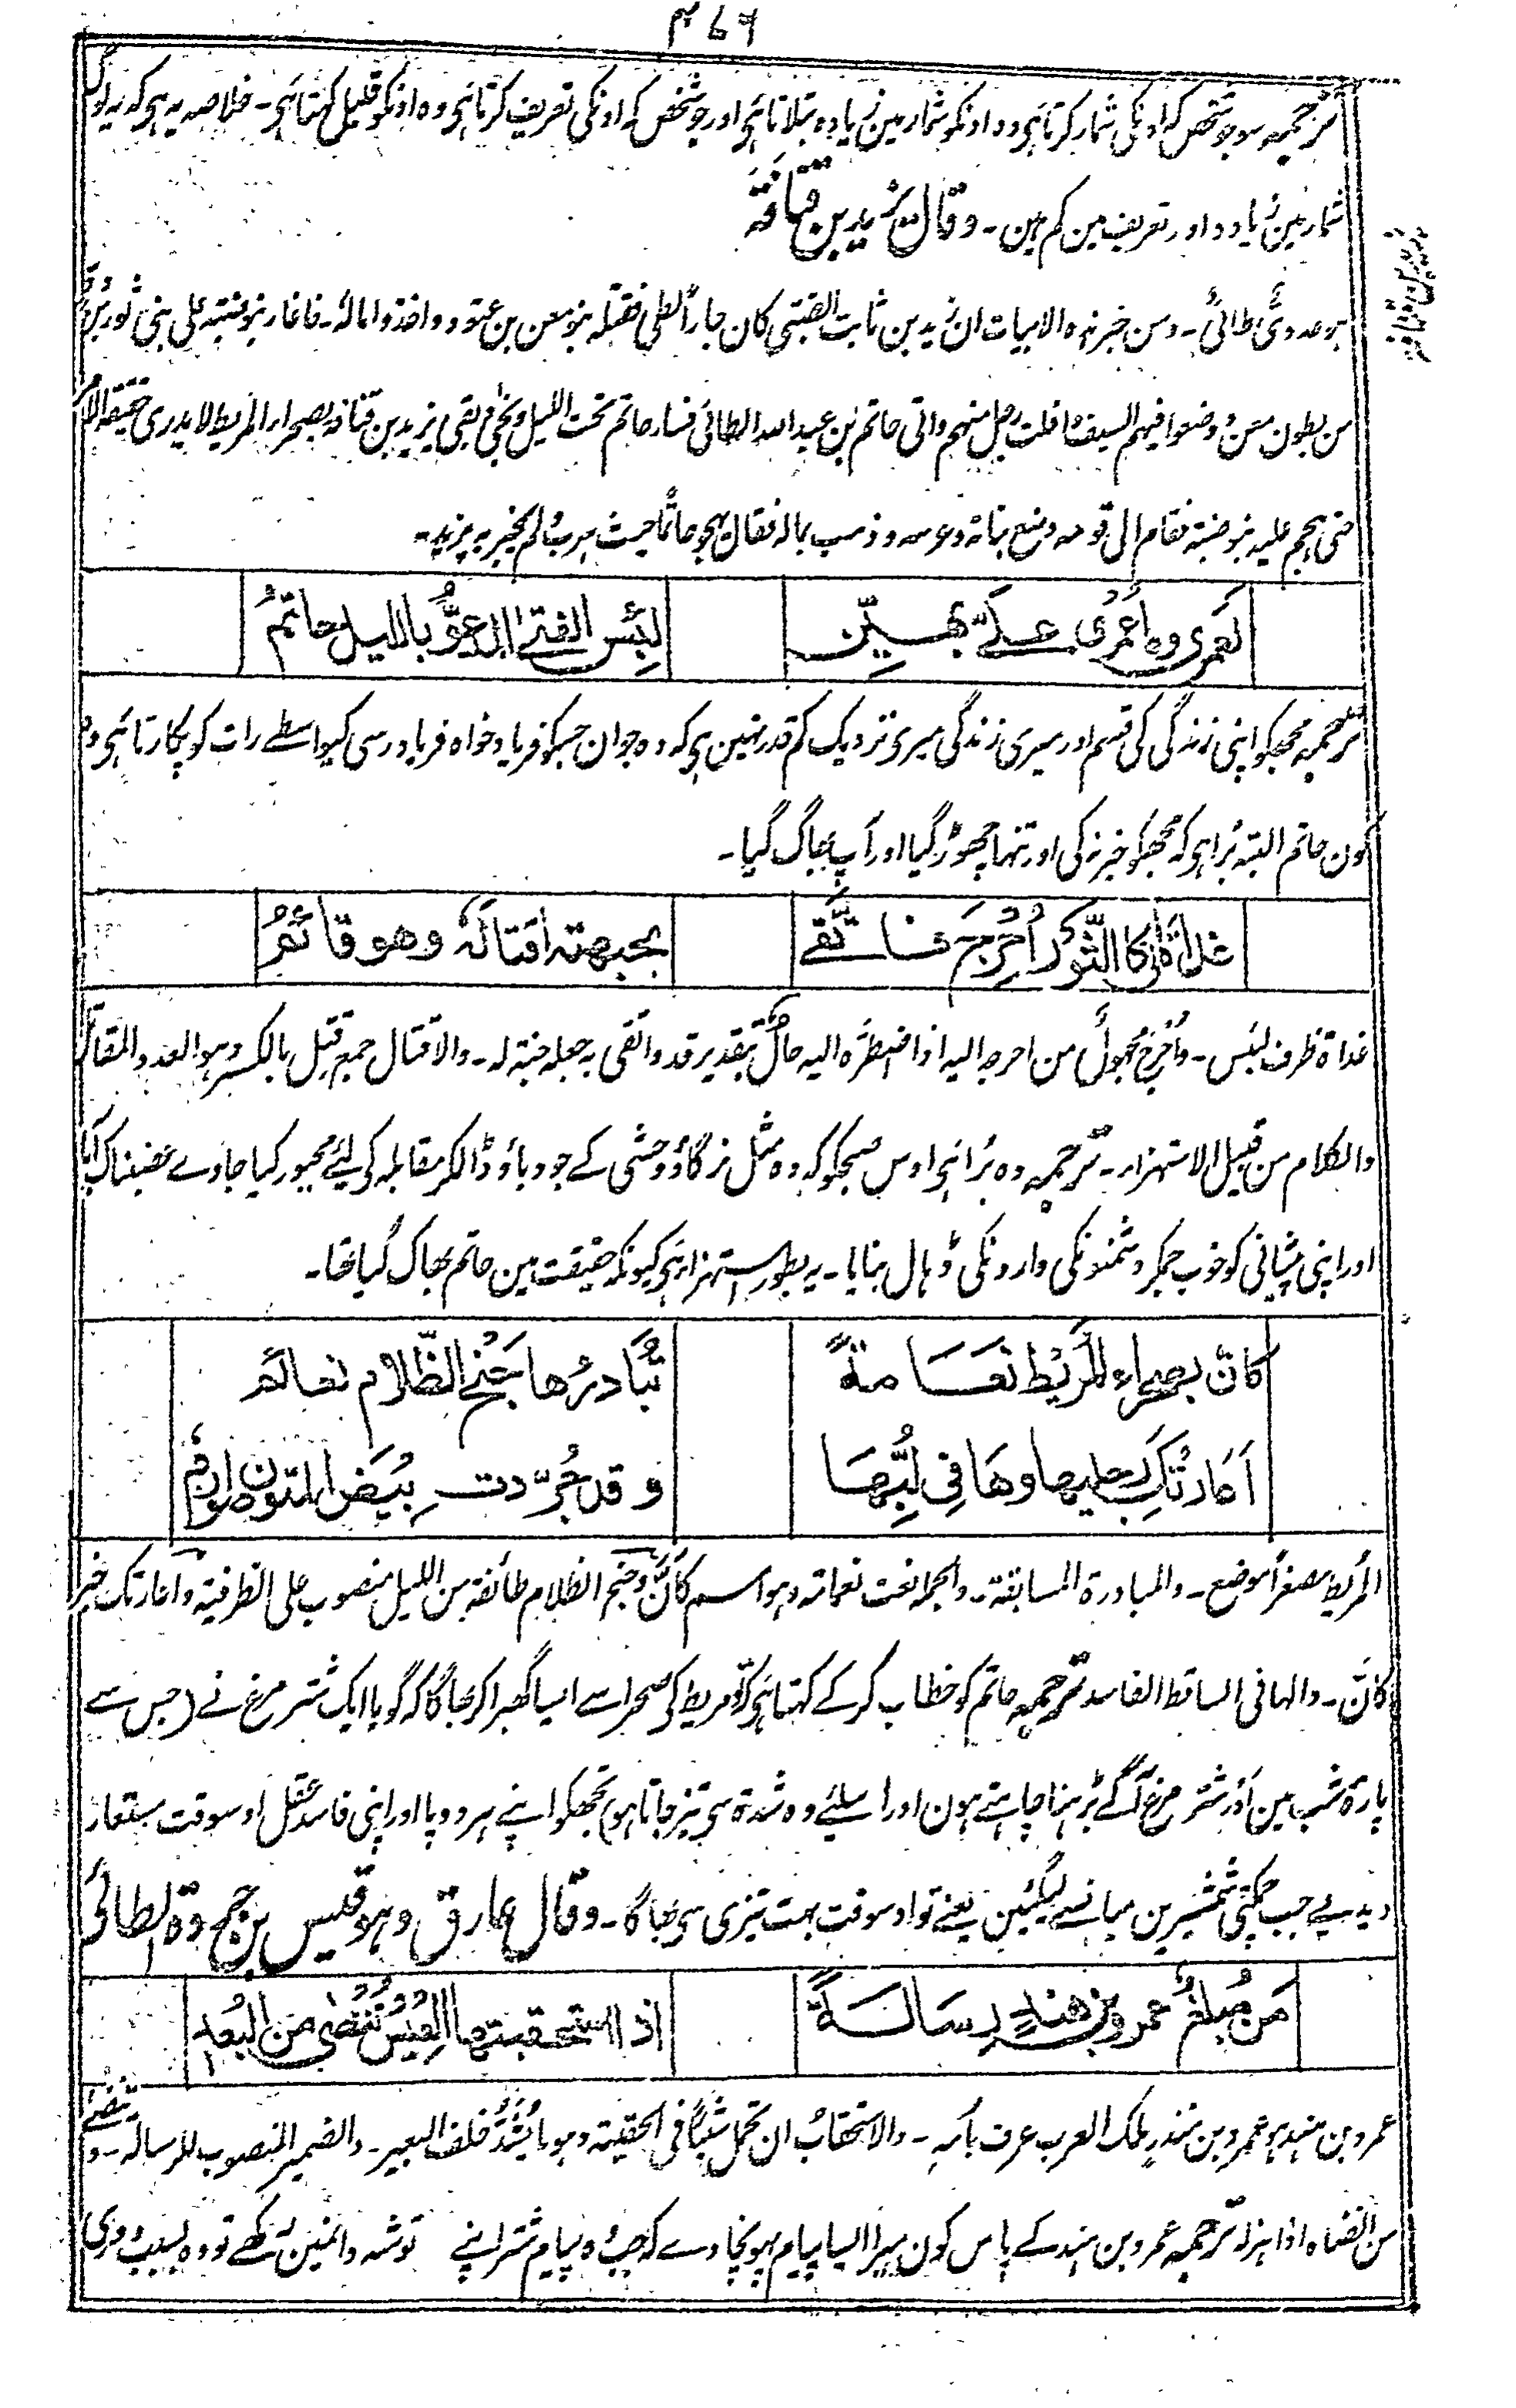 ۴۶۹
ترجمہ سو جو شخص کہ اونکی شمار کرتا ہی وہ اونکو شمار مین زیادہ بتلاتا ہی اور جو شخص کہ اونکی تعریف کرتا ہی وہ اونکو قلیل کہتا ہی۔ خلاصہ یہ ہی کہ یہ لوگ
شمار مین زیادہ اور تعریف مین کم ہین۔ وقال یزید بن قنافۃ
یزید بن قنافہ
ہو عدویٌ طائیٌ۔ ومن خبر ہذہ الابیات ان زید بن ثابت الضبتی کان جاراً لطی فقتلہ بنو معن بن عتود واخذوا مالہ۔ فاغار بنو ضبتہ علی بنی ثور
من بطون معن وضعوا فیہم السیف فافلت رجل منہم واتی حاتم بن عبداللہ الطائی فسار حاتم تحت اللیل ونجی وبقی یزید بن قنافہ بصحراء المریط لا یدری حقیقۃ الامر
حتی ہجم علیہ بنو ضبتہ فقام الی قومہ ومنع بناتہ وعرسہ وذہب بمالہ فقال یہجو حاتماً حیث ہرب ولم یخبر بہ یزید۔
لَعَمری وما عَمْرُی عَلَیَّ بھَیِّنٍ
لَبِئسَ الفتے المدعوُّ باللیل حاتمُ
ترجمہ مجھکو اپنی زندگی کی قسم اور میری زندگی میری نزدیک کم قدر نہین ہی کہ وہ جوان جسکو فریاد خواہ فریاد رسی کیواسطے رات کو پکارتا ہی وہ
کون حاتم البتہ بُرا ہی کہ مجھکو خبر نہ کی اور تنہا چھوڑ گیا اور آپ بھاگ گیا۔
غداۃَ اتٰی کالثَّورِ اُحْرِجَ فاتَّقے
بجبھتہ اَقتالَہٗ وھو قائمُ
غداۃ ظرف لبئس۔ واُحرِج مجہولٌ من احرجہ الیہ اذا اضطرّہ الیہ حالٌ بتقدیر قد واتّقی بہ جعلہ جنتہ لہ۔ والاقتال جمع قِتل بالکسر وہو العدو المقاتل
والکلام من قبیل الاستہزاء۔ ترجمہ وہ بُرا ہی اوس صبحکو کہ وہ مثل نر گاؤ وحشی کے جو دباؤ ڈالکر مقابلہ کی لیئے مجبور کیا جاوے غضبناک آیا
اور اپنی پیشانی کو خوب جمکر دشمنونکی وارونکی ڈہال بنایا۔ یہ بطور استہزا ہی کیونکہ حقیقت مین حاتم بھاگ گیا تھا۔
کانّ بصحراءِ المُرَیْطِ نَعَامَۃً
تُبَادرُھا جُنْحَ الظّلام نعائمُ
اَعَارَتْکَ رجلیھا وھَافِی لُبِّھَا
وقد جُرّدت بِیْضُ المتون صوارمُ
المریط مصغراً موضع۔ والمبادرۃ المسابقۃ۔ والجملۃ نعت نعامتہ وہو اسم کأنَّ وجنح الظلام طائفۃ من اللیل منصوب علی الظرفیۃ واعارتک خبر
کانّ۔ والہافی الساقط الفاسد ترجمہ حاتم کو خطاب کر کے کہتا ہی کہ تو مریط کی صحرا سے ایسا گھبرا کر بھاگا کہ گویا ایک شتر مرغ نے (جس سے
پارۂ شب مین اَوْر شتر مرغ آگے بڑہنا چاہتے ہون اور اسلیئے وہ شدۃ سی تیز جاتا ہو) تجھکو اپنے ہر دو پا اور اپنی فاسد عقل اوسوقت مستعار
دیدیے جب چمکتی شمشیرین میانسے لیگئین یعنے تو اوسوقت بہت تیزی سی بھاگا۔ وقال عارق وہو قیس بن جروۃ الطائی
مَن مُبلغٌ عمرو بن ھندٍ رِسَالَۃً
اذا استحقبتھا العِیْسُ تُنْضٰی من البُعدِ
عمرو بن ہند ہو عمرو بن منذر ملک العرب عرف بأمہ۔ والاستحقابُ ان تحمل شیئاً فی الحقیبۃ وہو ما یُشَدُّ خلف البعیر۔ والضمیر المنصوب للرسالہ۔ وتنضیٰ
من انضاہ اذا ہزلہ ترجمہ عمرو بن ہند کے پاس کون میرا ایسا پیام پہونچاوے کہ جب وہ پیام شتر اپنے توشہ دانمین رکھے تو وہ بسبب دوری